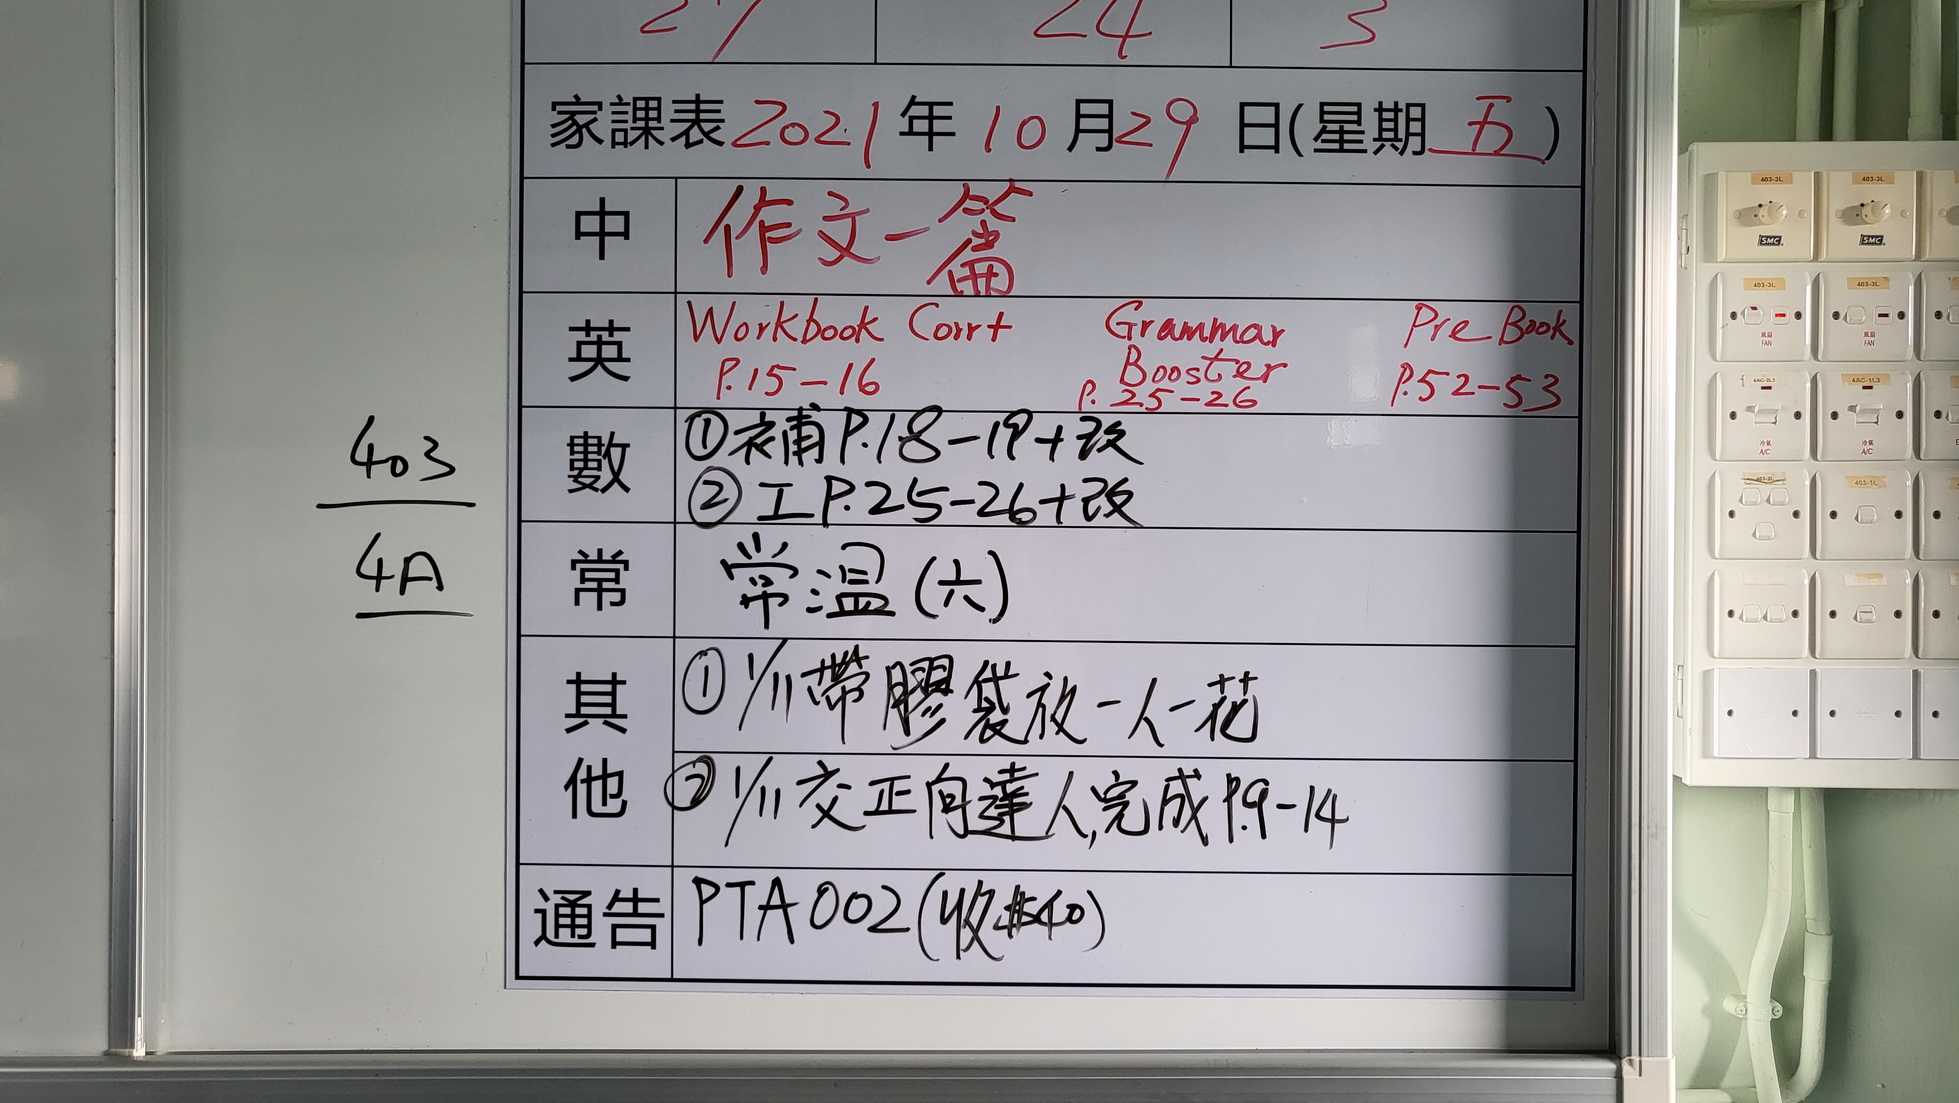 27 24 3
家課表 2021 年 10 月 29 日(星期 五)
中 作文一篇
英 Workbook Corrt Grammar Booster Pre Book
P.15-16 P.25-26 P.52-53
數 ①補P.18-19+改
②工P.25-26+改
常 常温(六)
其他 ①1/11帶膠袋放一人一花
②1/11交正向達人,完成P.9-14
通告 PTA002(收$40)
403
4A
403-3L 403-3L
SMC SMC
403-3L 403-3L
風扇 風扇
FAN FAN
4AC-2L3 4AC-1L3
冷氣 冷氣
A/C A/C
403-2L 403-1L